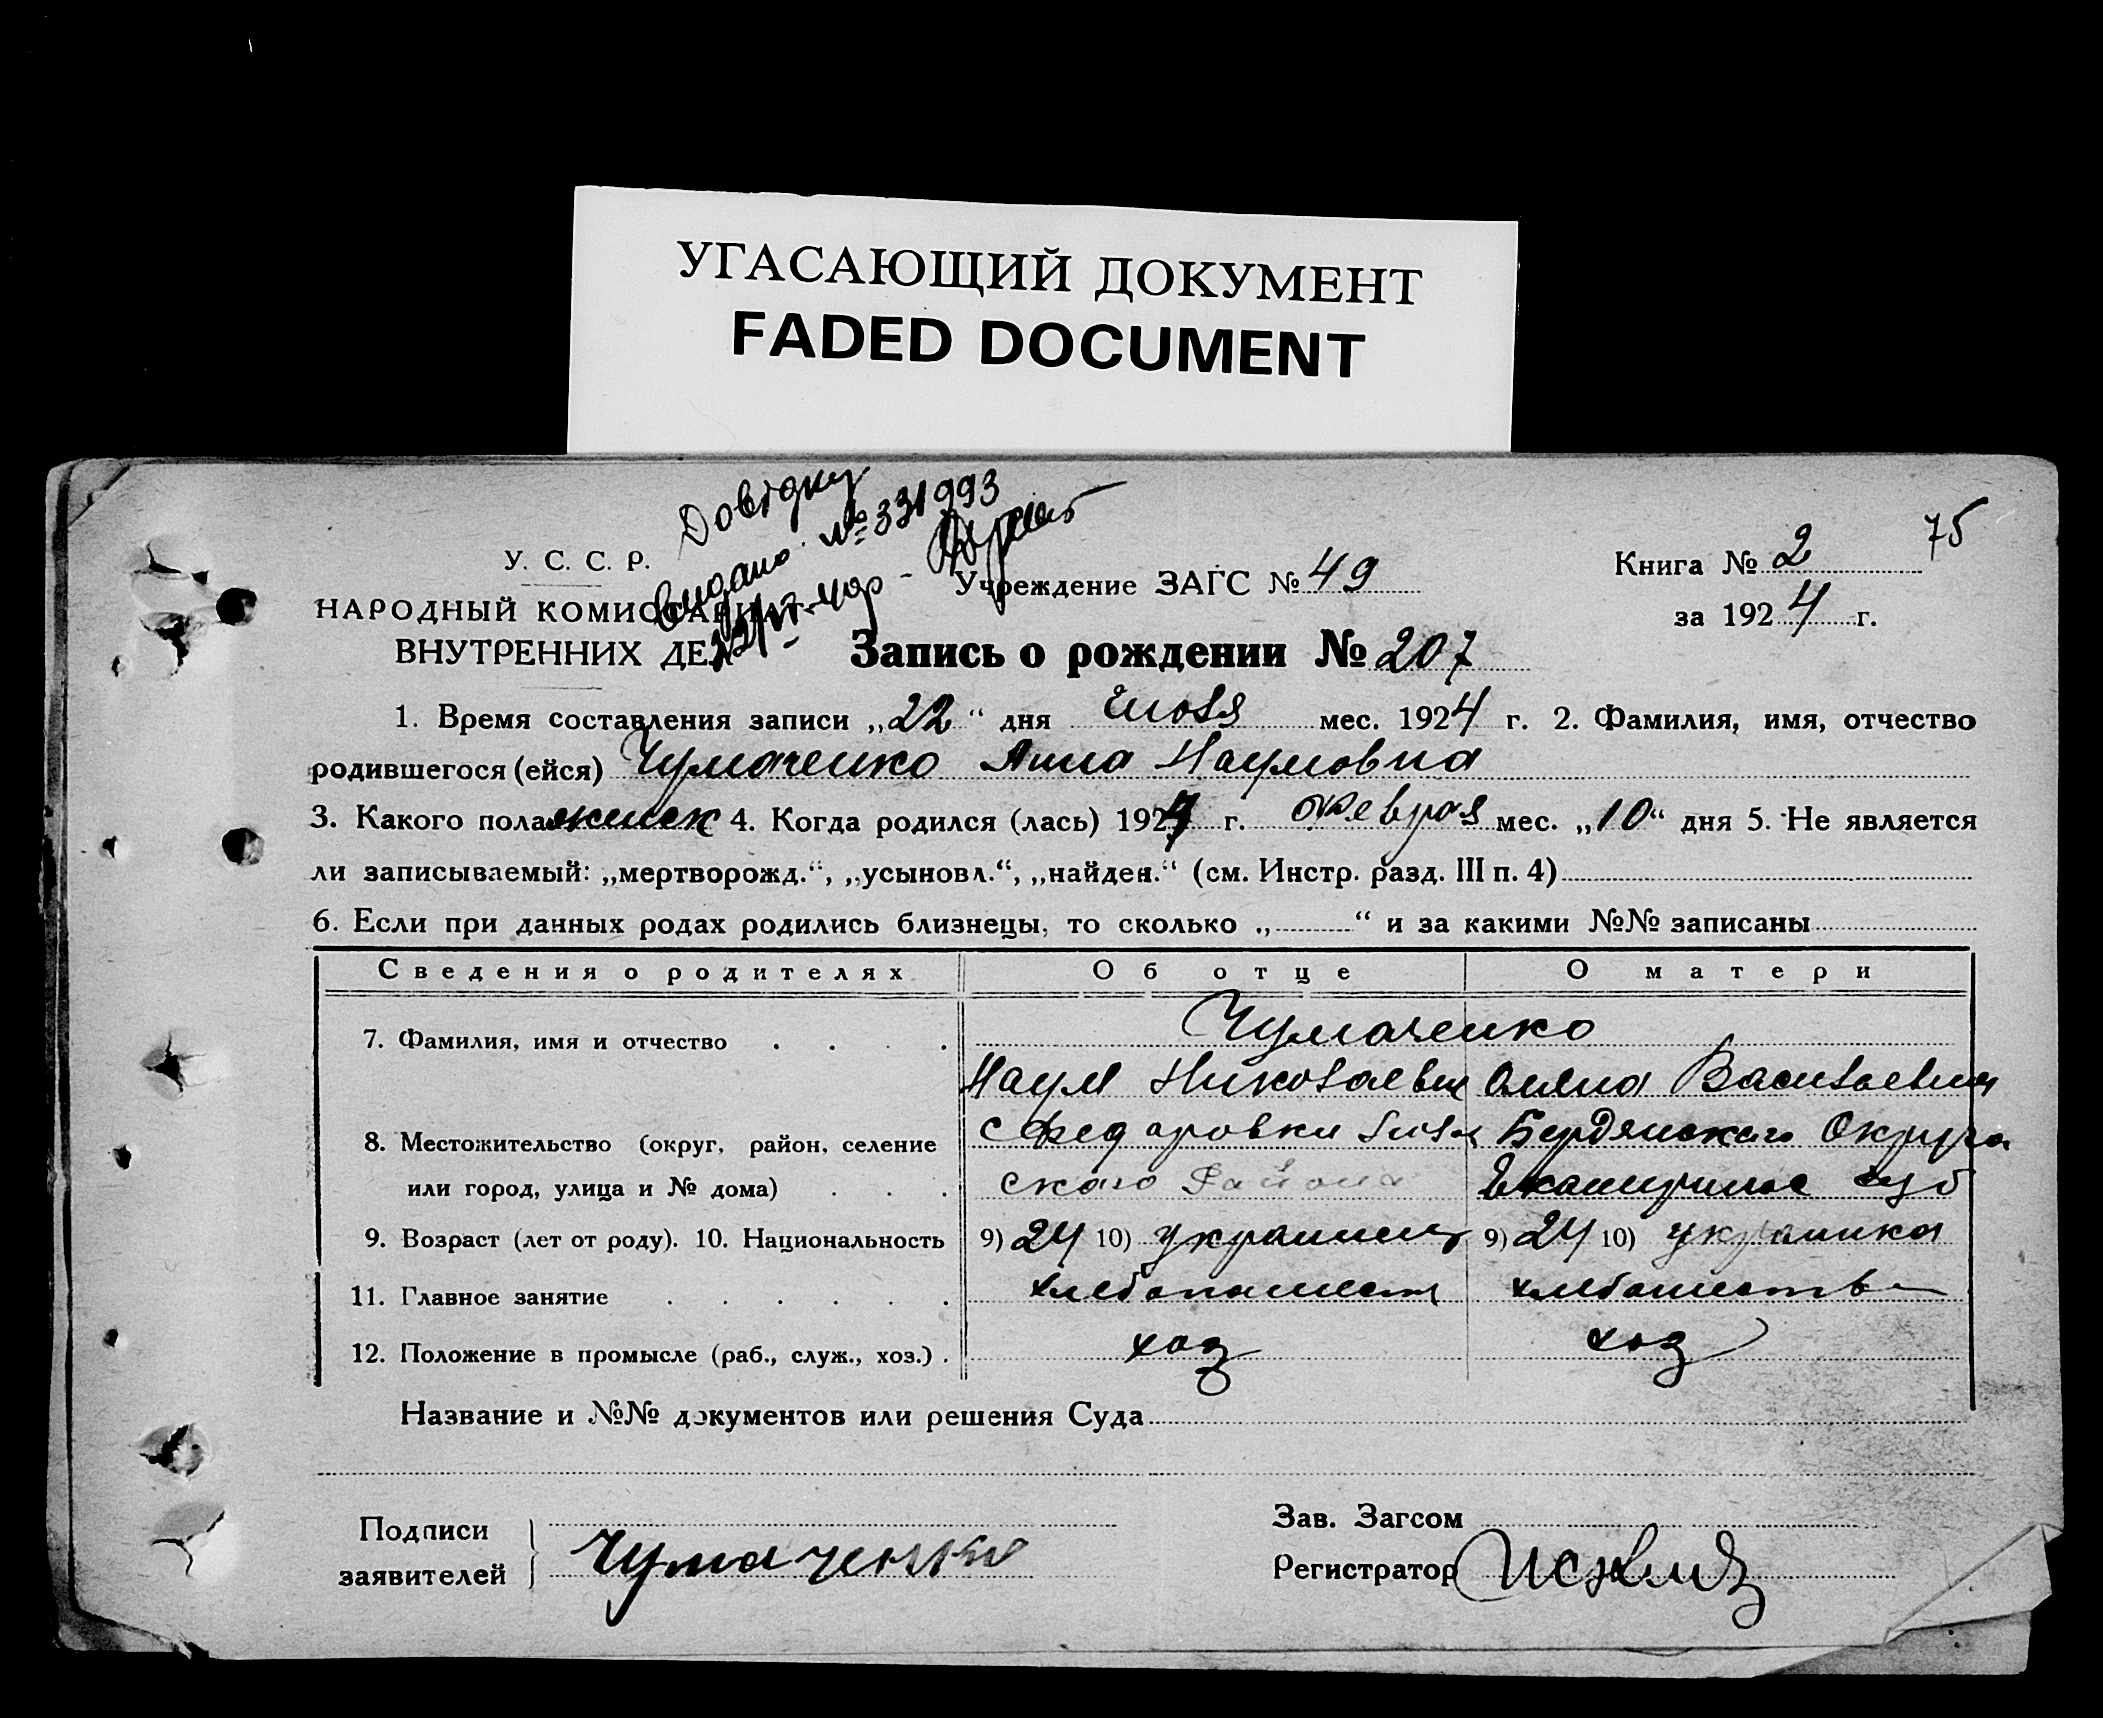 УГАСАЮЩИЙ ДОКУМЕНТ
FADED DOCUMENT
Довідку
видано №331993
75
У. С. С. Р.
НАРОДНЫЙ КОМИССАРИАТ
ВНУТРЕННИХ ДЕЛ
Учреждение ЗАГС № 49
Книга № 2
за 1924 г.
Запись о рождении № 207
1. Время составления записи „22“ дня июля мес. 1924 г. 2. Фамилия, имя, отчество
родившегося (ейся) Чумаченко Анна Наумовна
3. Какого пола женск 4. Когда родился (лась) 1924 г. февраля мес. „10“ дня 5. Не является
ли записываемый: „мертворожд.“, „усыновл.“, „найден.“ (см. Инстр. разд. III п. 4)
6. Если при данных родах родились близнецы, то сколько „ “ и за какими №№ записаны
Сведения о родителях Об отце О матери
7. Фамилия, имя и отчество Чумаченко
Наум Николаевич Васильевна
8. Местожительство (округ, район, селение Бердянского Округа
или город, улица и № дома) ского Района Екатеринос губ
9. Возраст (лет от роду). 10. Национальность 9) 24 10) украинец 9) 24 10) украинка
11. Главное занятие
12. Положение в промысле (раб., служ., хоз.) хоз хоз
Название и №№ документов или решения Суда
Подписи
заявителей Чумаченко
Зав. Загсом
Регистратор